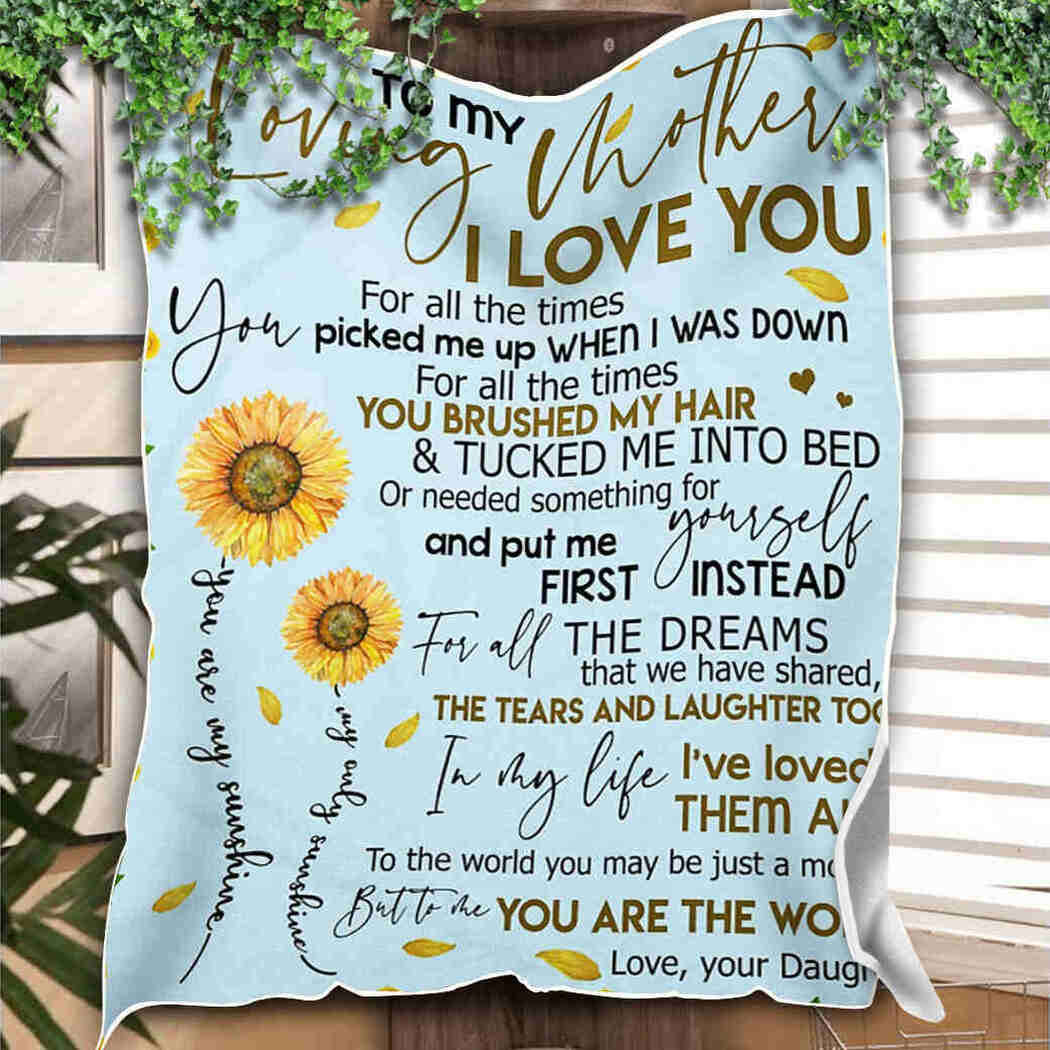 TO MY
Loving Mother
I LOVE YOU
For all the times
You picked me up WHEN I WAS DOWN
For all the times
YOU BRUSHED MY HAIR
& TUCKED ME INTO BED
Or needed something for
yourself
and put me
FIRST INSTEAD
For all THE DREAMS
that we have shared,
THE TEARS AND LAUGHTER TOO
In my life I've loved
THEM A
To the world you may be just a mo
But to me YOU ARE THE WO
Love, your Daugh
you are my sunshine
my only sunshine